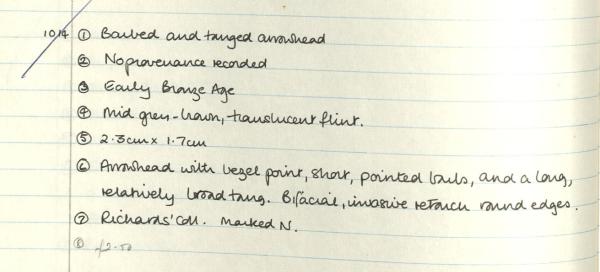 1014 ① Barbed and tanged arrowhead
② No provenance recorded
③ Early Bronze Age
④ Mid grey-brown, translucent flint.
⑤ 2.3cm x 1.7cm
⑥ Arrowhead with bezel point, short, pointed barbs, and a long,
relatively broad tang. Bifacial, invasive retouch round edges.
⑦ Richards' Coll. Marked N.
⑧